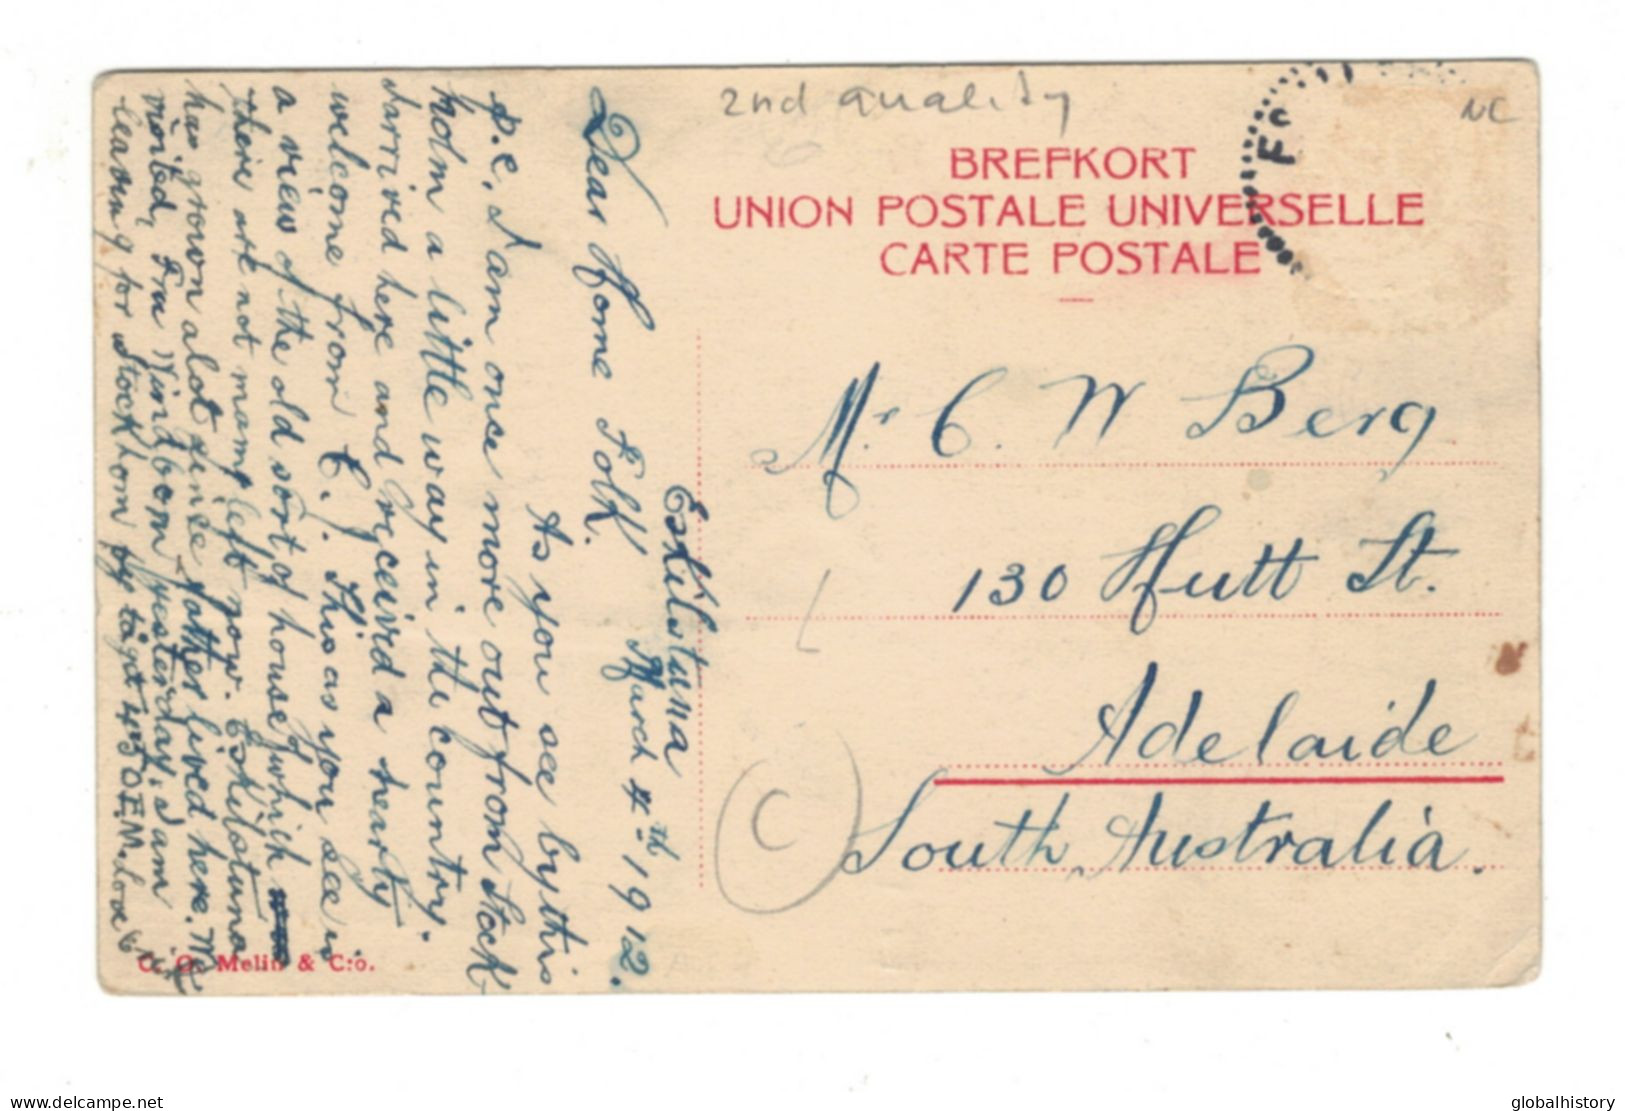 2nd quality
NC
BREFKORT
UNION POSTALE UNIVERSELLE
CARTE POSTALE
Es
Mr C. W Berg
130 Hutt St.
Adelaide
South Australia.
C
Eskilstuna
March 4th 1912.
Dear Home Folk.
As you see by this
p.c. I am once more out from Stock
holm a little way in the country.
I arrived here and received a hearty
welcome from E. This as you see is
a view of the old sort of houses which
there are not many left now. Eskilstuna
has grown alot since father lived here. We
visited Fru Lindbom yesterday, I am
leaving for Stockholm by tåget 4.50 E.M. Love to
C. O. Melin & C:o.